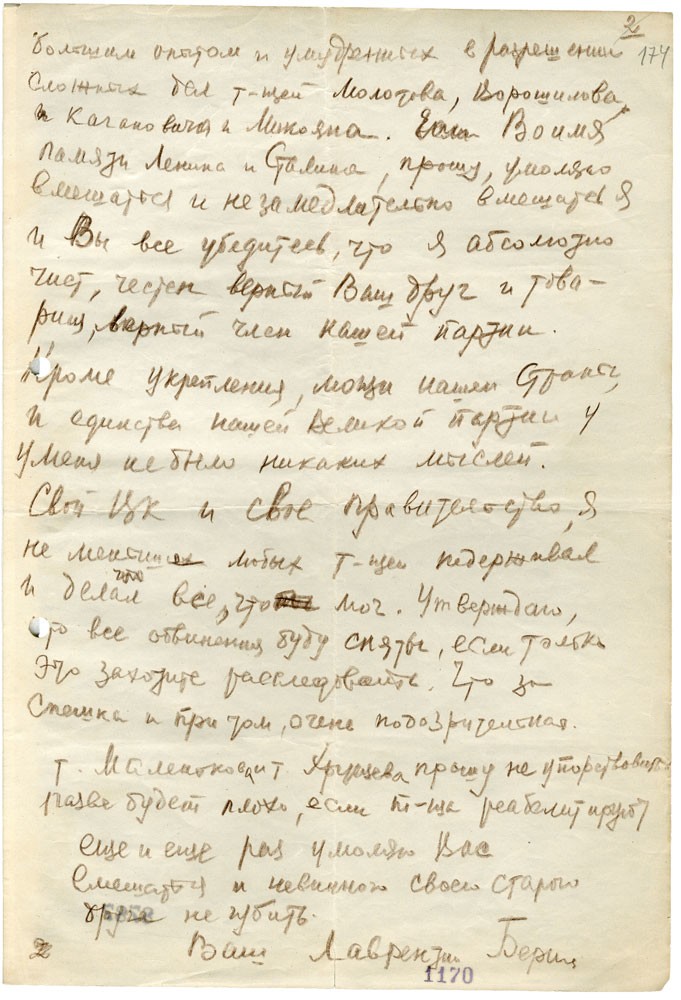 2
174
большим опытом и умудренных в разрешении
сложных дел т-щей Молотова, Ворошилова,
и Кагановича и Микояна. Во имя
памяти Ленина и Сталина, прошу, умоляю
вмешаться и незамедлительно вмешатся
и Вы все убедитесь, что я абсолютно
чист, честен верный Ваш друг и това-
рищ, верный член нашей партии.
Кроме укрепления, мощи нашей Страны,
и единства нашей Великой партии у
у меня не было никаких мыслей.
Свой ЦК и свое Правительство, я
не меньше любых т-щей подерживал
и делал все, что мог. Утверждаю,
что все обвинения буду сняты, если только
это захотите расследовать. Что за
спешка и при том, очень подозрительная.
т. Маленкова и т Хрущева прошу не упорствовать
разве будет плохо, если т-ща реабелит
еще и еще раз умоляю Вас
вмешатся и невинного своего старого
друга не губить.
Ваш Лаврентий Берия
1170